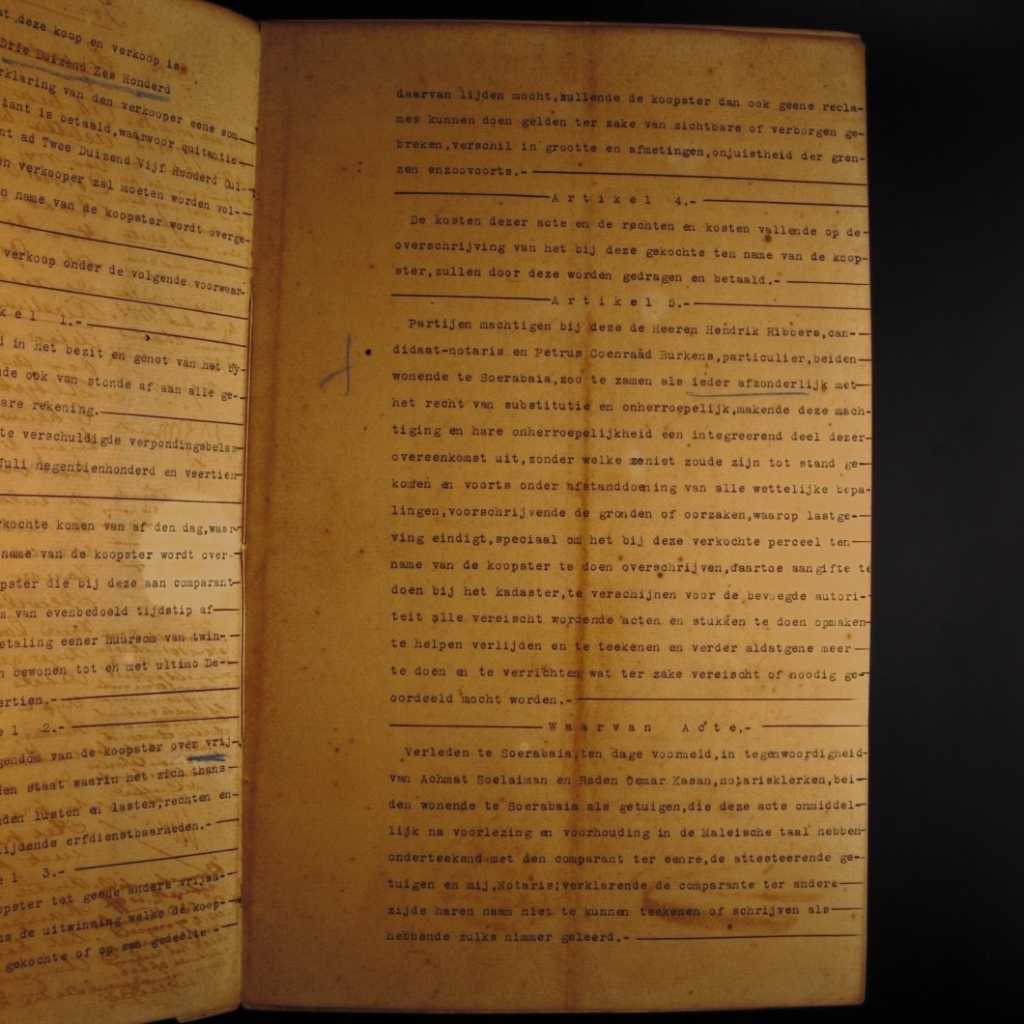 at deze koop en verkoop is
Drie Duizend Zes Honderd
rklaring van den verkooper eene som
tant is betaald,waarvoor quitantie
nt ad Twee Duizend Vijf Honderd Gul-
en verkooper zal moeten worden vol-
n name van de koopster wordt overge-
verkoop onder de volgende voorwaar-
k e l 1.-
j in het bezit en genot van het by-
ude ook van stonde af aan alle ge-
are rekening.
te verschuldigde verpondingsbelas-
Juli negentienhonderd en veertien
rkochte komen van af den dag,waar-
name van de koopster wordt over-
pster die bij deze aan comparant
s van evenbedoeld tijdstip af
etaling eener huursom van twin-
n bewonen tot en met ultimo De-
ertien.-
e l 2.-
gendom van de koopster over vrij-
den staat waarin het zich thans
nden lusten en lasten,rechten en
lijdende erfdienstbaarheden.-
e l 3.-
opster tot geene andere vrijwa-
ns de uitwinning welke de koop-
gekochte of op een gedeelte
daarvan lijden mocht,zullende de koopster dan ook geene recla-
mes kunnen doen gelden ter zake van zichtbare of verborgen ge-
breken,verschil in grootte en afmetingen,onjuistheid der gren-
zen enzoovoorts.-
A r t i k e l 4.-
De kosten dezer acte en de rechten en kosten vallende op de
overschrijving van het bij deze gekochte ten name van de koop-
ster,zullen door deze worden gedragen en betaald.-
A r t i k e l 5.-
Partijen machtigen bij deze de Heeren Hendrik Hibbers,can-
didaat-notaris en Petrus Coenraad Burkens,particulier,beiden
wonende te Soerabaia,zoo te zamen als ieder afzonderlijk met
het recht van substitutie en onherroepelijk,makende deze mach-
tiging en hare onherroepelijkheid een integreerend deel dezer
overeenkomst uit,zonder welke zeniet zoude zijn tot stand ge-
komen en voorts onder afstanddoening van alle wettelijke bepa-
lingen,voorschrijvende de gronden of oorzaken,waarop lastge-
ving eindigt,speciaal om het bij deze verkochte perceel ten
name van de koopster te doen overschrijven,daartoe aangifte te
doen bij het kadaster,te verschijnen voor de bevoegde autori-
teit alle vereischt wordende acten en stukken te doen opmaken
te helpen verlijden en te teekenen en verder aldatgene meer
te doen en te verrichten wat ter zake vereischt of noodig ge-
oordeeld mocht worden.-
W a a r v a n A c t e,-
Verleden te Soerabaia,ten dage voormeld,in tegenwoordigheid
van Achmat Soelaiman en Raden Oemar Kasan,notarisklerken,bei-
den wonende te Soerabaia als getuigen,die deze acte onmiddel-
lijk na voorlezing en voorhouding in de Maleische taal hebben
onderteekend met den comparant ter eenre,de attesteerende ge-
tuigen en mij,Notaris;verklarende de comparante ter andere
zijde haren naam niet te kunnen teekenen of schrijven als
hebbende zulks nimmer geleerd.-